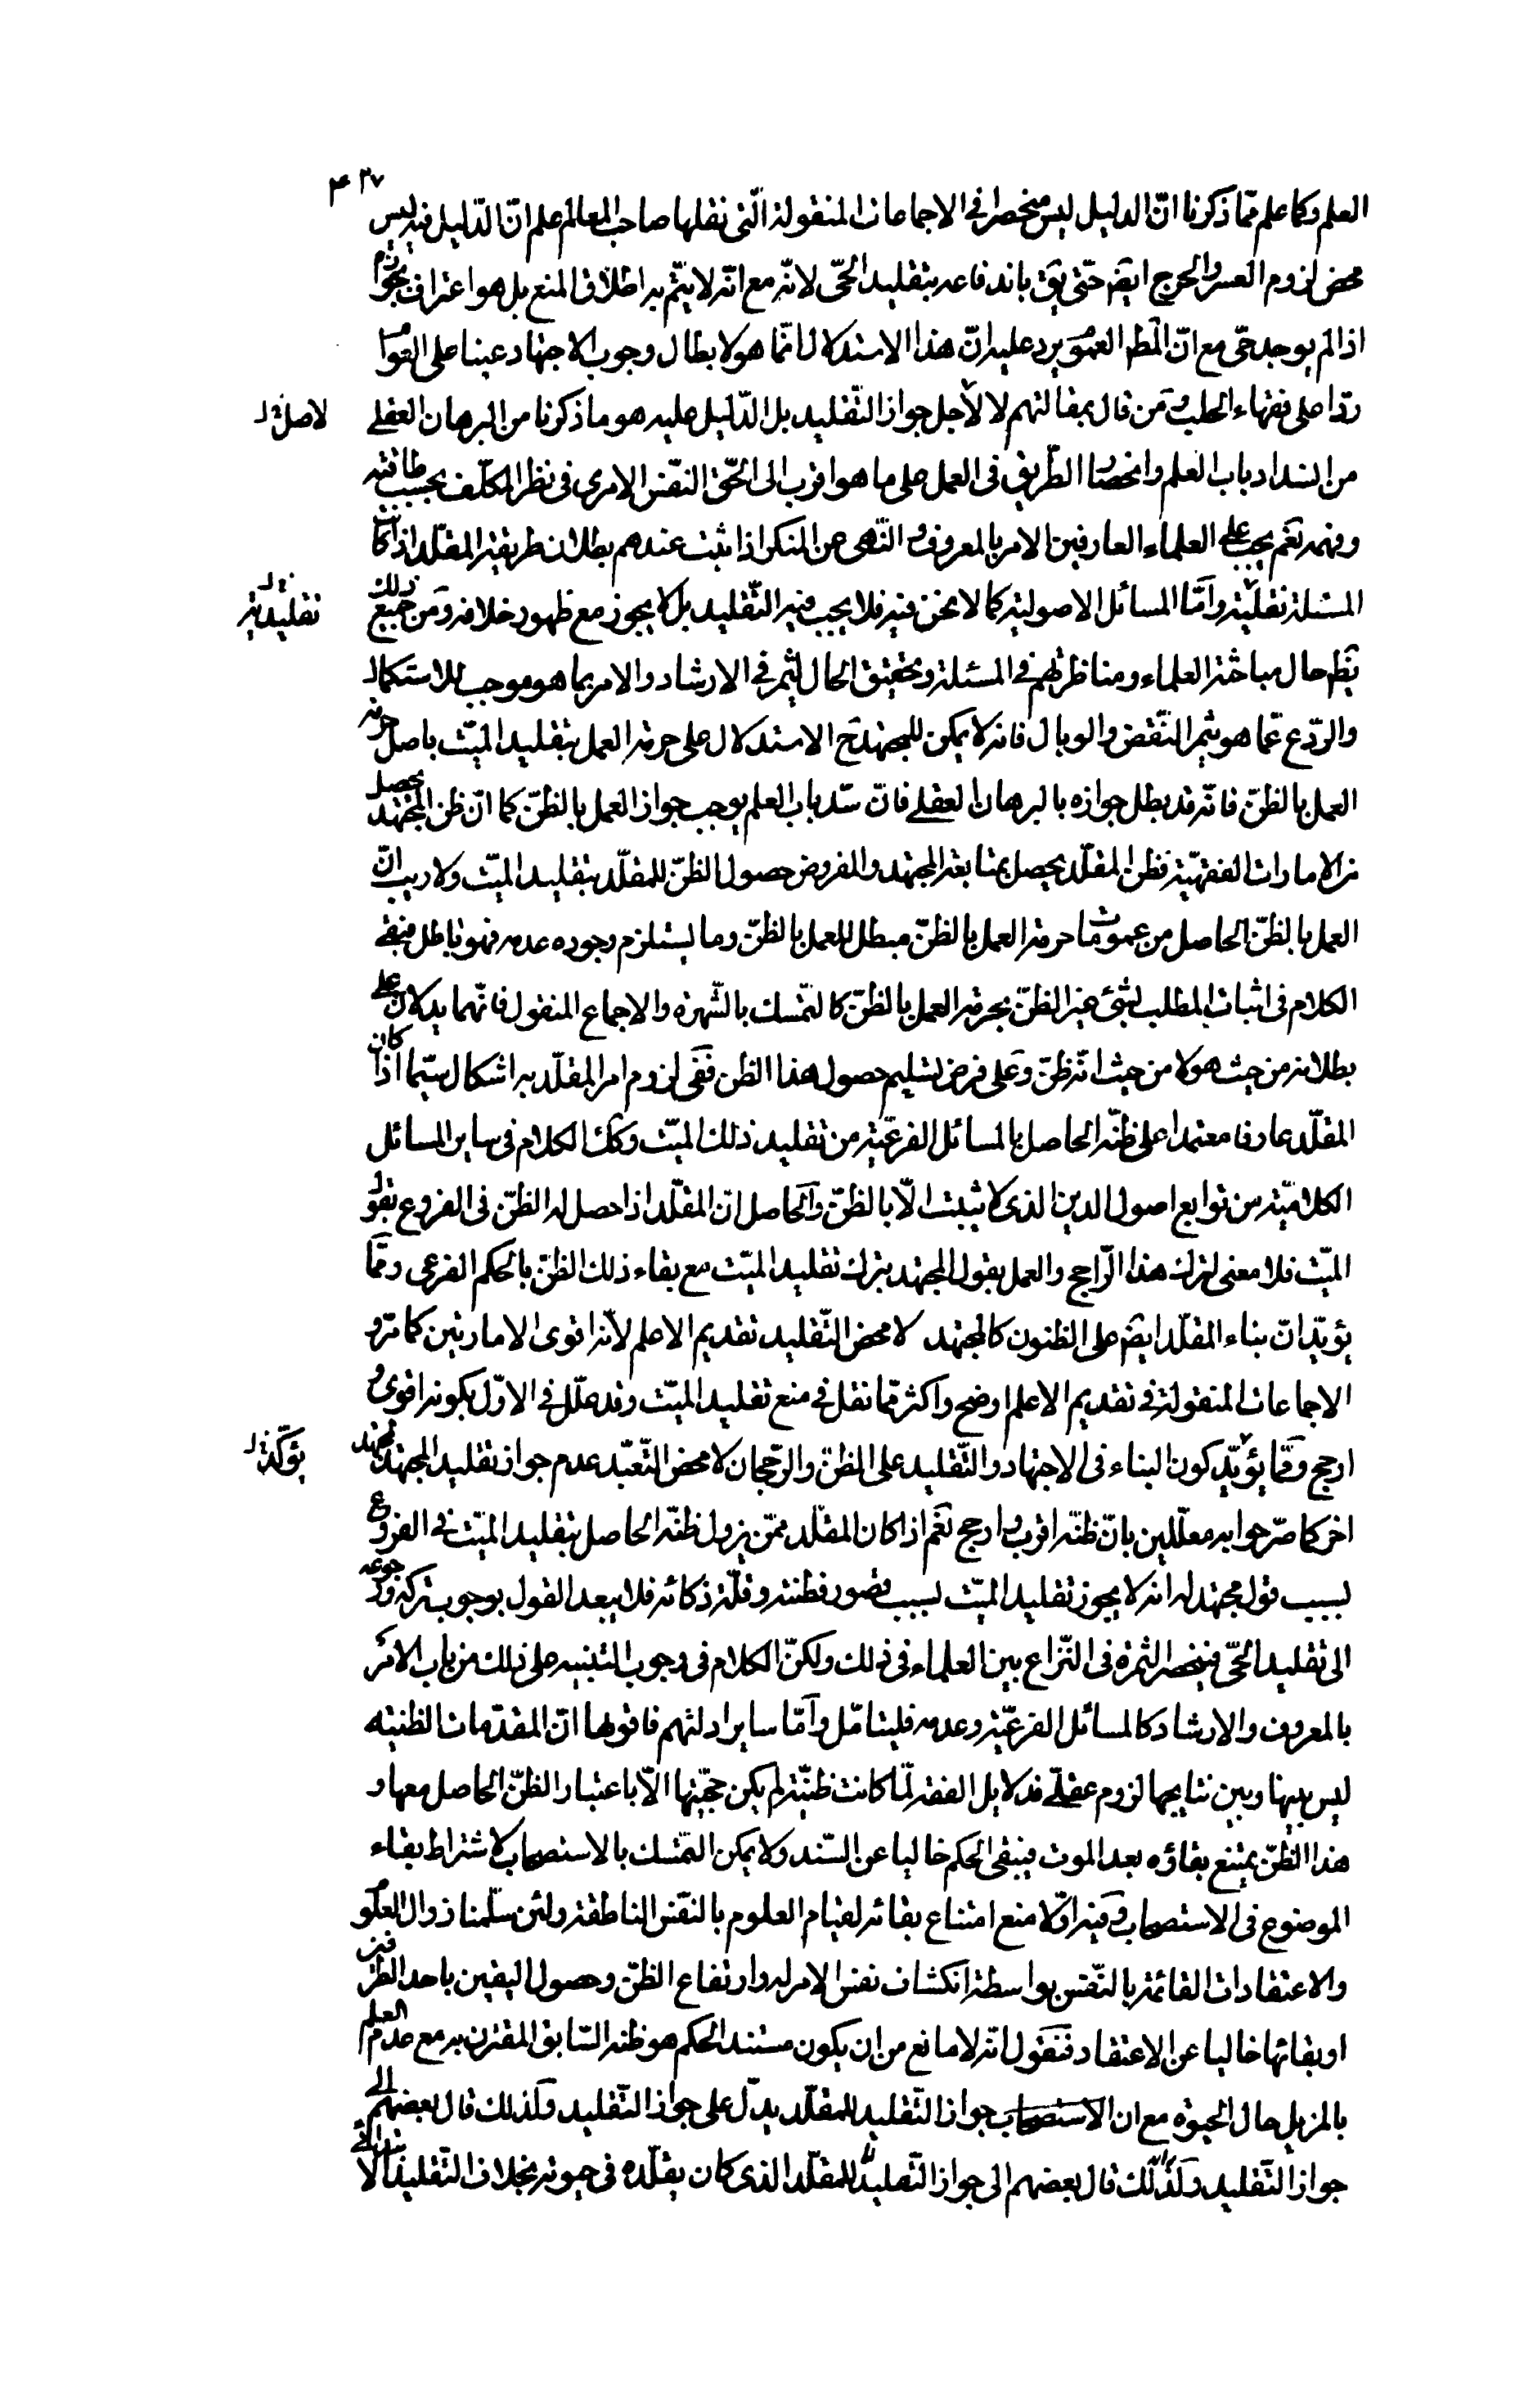 ۴۳۷
العلم وكما علم مما ذكرنا انّ الدليل ليس منحصرا فى الاجماعات المنقولة الّتى نقلها صاحب المعالم علم انّ الدّليل فيه ليس
محض لزوم العسر والحرج ايضا حتّى يق باندفاعه بتقليد الحىّ لانّه مع انّه لا يتمّ به اطلاق المنع بل هو اعتراف بجوازه
اذا لم يوجد حىّ مع انّ المط العموم يرد عليه انّ هذا الاستدلال انّما هو لابطال وجوب الاجتهاد عينا على العوام
ردّا على فقهاء الحلب ومن قال بمقالتهم لا لأجل جواز التّقليد بل الدّليل عليه هو ما ذكرنا من البرهان العقلى
لاصل
من انسداد باب العلم وانحصار الطّريق فى العمل على ما هو اقرب الى الحقّ النّفس الامرى فى نظر المكلّف بحسب طاقته
وفهمه نعم يجب على العلماء العارفين الامر بالمعروف والنّهى عن المنكر اذا ثبت عندهم بطلان طريقة المقلّد اذا كانت
المسئلة نقليّة وامّا المسائل الاصولية كما لا نحن فيه فلا يجب فيه التّقليد بل لا يجوز مع ظهور خلافه ومن جميع ذلك
تقليديّة
يظهر حال مباحثة العلماء ومناظرتهم فى المسئلة وتحقيق الحال يثمر فى الارشاد والامر بما هو موجب للاستكمال
والرّدع عمّا هو يثمر النّقض والوبال فانه لا يمكن للمجتهد ح الاستدلال على حرمة العمل بتقليد الميّت باصل حرمة
العمل بالظنّ فانّه قد بطل جوازه بالبرهان العقلى فانّ سدّ باب العلم يوجب جواز العمل بالظنّ كما انّ ظن المجتهد يحصل
من الامارات الفقهيّة فظن المقلّد يحصل بمتابعة المجتهد والمفروض حصول الظنّ للمقلّد بتقليد الميّت ولا ريب انّ
العمل بالظنّ الحاصل من عمومات ما حرمة العمل بالظنّ مبطل للعمل بالظنّ وما يستلزم وجوده عدمه فهو باطل فبقى
الكلام فى اثبات المطلب بشئ غير الظنّ بحرمة العمل بالظنّ كالتمسّك بالشّهرة والاجماع المنقول فانّهما يدلان على
بطلانه من حيث هو لا من حيث انّه ظنّ وعلى فرض تسليم حصول هذا الظن ففى لزوم امر المقلّد به اشكال سيّما اذا كان
المقلّد عارفا معتمدا على ظنّه الحاصل بالمسائل الفرعيّة من تقليد ذلك الميّت وكك الكلام فى ساير المسائل
الكلاميّة من توابع اصول الدين الذى لا يثبت الّا بالظنّ والحاصل ان المقلّد اذا حصل له الظنّ فى الفروع بقول
الميّت فلا معنى لترك هذا الرّاجح والعمل بقول المجتهد بترك تقليد الميّت مع بقاء ذلك الظنّ بالحكم الفرعى وممّا
يؤيّد انّ بناء المقلّد ايضا على الظنون كالمجتهد لا محض التّقليد تقديم الاعلم لانّه اقوى الامارتين كما مرّ و
الاجماعات المنقولة فى تقديم الاعلم اوضح واكثر ممّا نقل فى منع تقليد الميّت وقد علّل فى الاوّل بكونه اقوى و
ارجح وممّا يؤيّد كون البناء فى الاجتهاد والتّقليد على الظنّ والرّجحان لا محض التّعبّد عدم جواز تقليد المجتهد لمجتهد
يؤكّد
اخر كما صرّحوا به معلّلين بانّ ظنّه اقرب وارجح نعم اذا كان المقلّد ممّن يزول ظنّه الحاصل بتقليد الميّت فى الفروع
بسبب قول مجتهد له انه لا يجوز تقليد الميّت بسبب قصور فطنته وقلّة ذكائه فلا يبعد القول بوجوب تركه ورجوعه
الى تقليد الحىّ فينحصر الثمرة فى النّزاع بين العلماء فى ذلك ولكنّ الكلام فى وجوب التنبيه على ذلك من باب الامر
بالمعروف والارشاد كالمسائل الفرعيّة وعدمه فليتامّل وامّا ساير ادلتهم فاقوها انّ المقدّمات الظنيّه
ليس بينها وبين نتايجها لزوم عقلى فدلايل الفقه لمّا كانت ظنيّة لم يكن حجّيتها الّا باعتبار الظنّ الحاصل معها و
هذا الظنّ يمتنع بقاؤه بعد الموت فيبقى الحكم خاليا عن السّند ولا يمكن التمسّك بالاستصحاب لاشتراط بقاء
الموضوع فى الاستصحاب وفيه اوّلا منع امتناع بقائه لقيام العلوم بالنّفس الناطقة ولئن سلّمنا زوال العلوم
والاعتقادات القائمة بالنّفس بواسطة انكشاف نفس الامر له وارتفاع الظنّ وحصول اليقين باحد الطرفين
او بقائها خاليا عن الاعتقاد فنقول انّه لا مانع من ان يكون مستند الحكم هو ظنه السّابق المقترن به مع عدم العلم
بالمزيل حال الحيوة مع ان الاستصحاب جواز التّقليد للمقلّد يدلّ على جواز التّقليد ولذلك قال بعضهم الى
جواز التّقليد ولذلك قال بعضهم الى جواز التّقليد للمقلّد الذى كان يقلّده فى حيوته بخلاف التّقليد